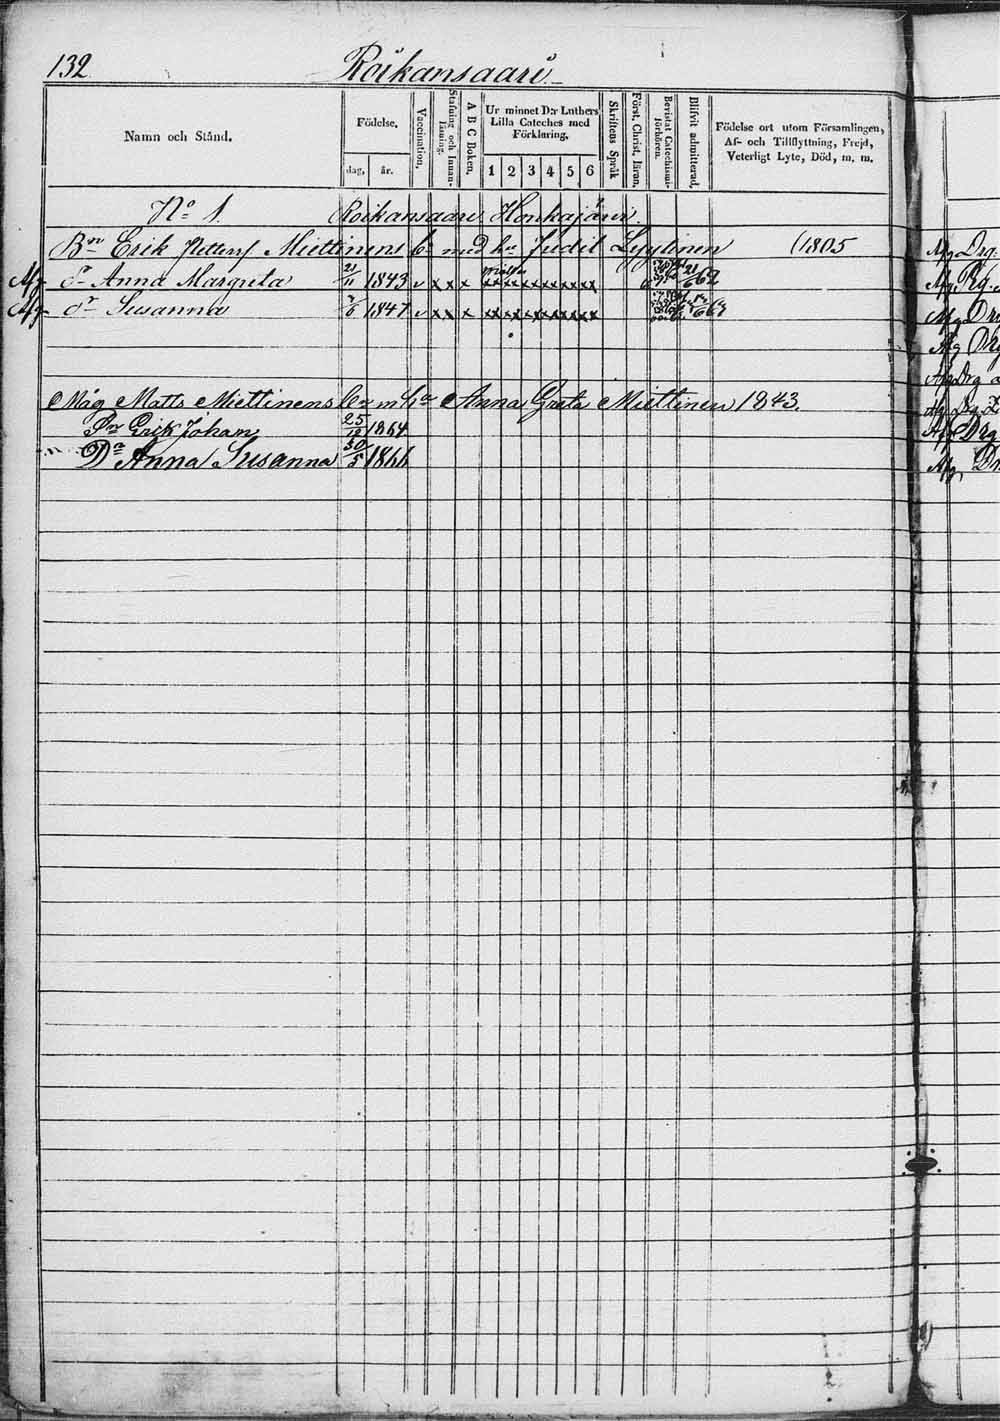 132 Roikansaari
Namn och Stånd. Födelse. Vaccination. Stafning och Innanläsning. A B C Boken. Ur minnet D:r Luthers Lilla Cateches med Förklaring. Skriftens Språk Först. Christ. läran. Bevistat Catechismiförhören. Blifvit admitterad. Födelse ort utom Församlingen, Af- och Tillflyttning, Frejd, Veterligt Lyte, Död, m. m.
dag. år. 1 2 3 4 5 6
No 1. Roikansaari Honkajärvi
Bn Erik Petters Miettinens med hu Judit Lyytinen (1805
Afg dr Anna Margreta 21/11 1843 v x x x xxxxxxxxxxx 21/6 62
Afg dr Susanna 7/6 1847 v x x x xxxxxxxxxxx 63
Måg Matts Miettinens Ca m hu Anna Greta Miettinen 1843.
Sn Erik Johan 25 1864
Dr Anna Susanna 30/5 1866
Afg Drg.
Afg Rg.
Afg Dr
Afg Drg
Afg Drg
Afg Drg
Afg Drg
Afg, Dr